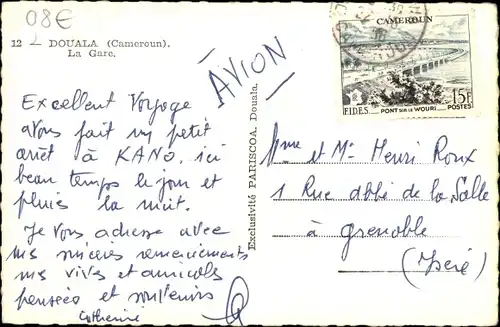 08€
12 DOUALA (Cameroun).
La Gare.
AVION
Excellent Voyage
avons fait un petit
arrêt à KANO, ici
beau temps le jour et
pluies la nuit.
Je vous adresse avec
mes sincères remerciements
mes vives et amicales
pensées et souvenirs
Catherine
Exclusivité PARISCOA, Douala.
CAMEROUN
15F
FIDES. PONT SUR LE WOURI POSTES
Mme et Mr Henri Roux
1 Rue abbé de la Salle
à Grenoble
(Isère)